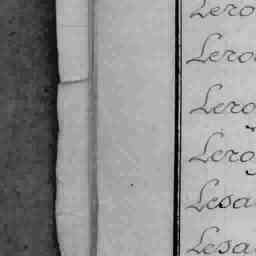 Lero
Lero
Lero
Leroy
Lesa
Lesa